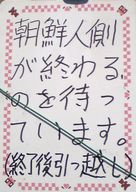 朝鮮人側
が終わる
のを待っ
ています。
(終了後引っ越し)